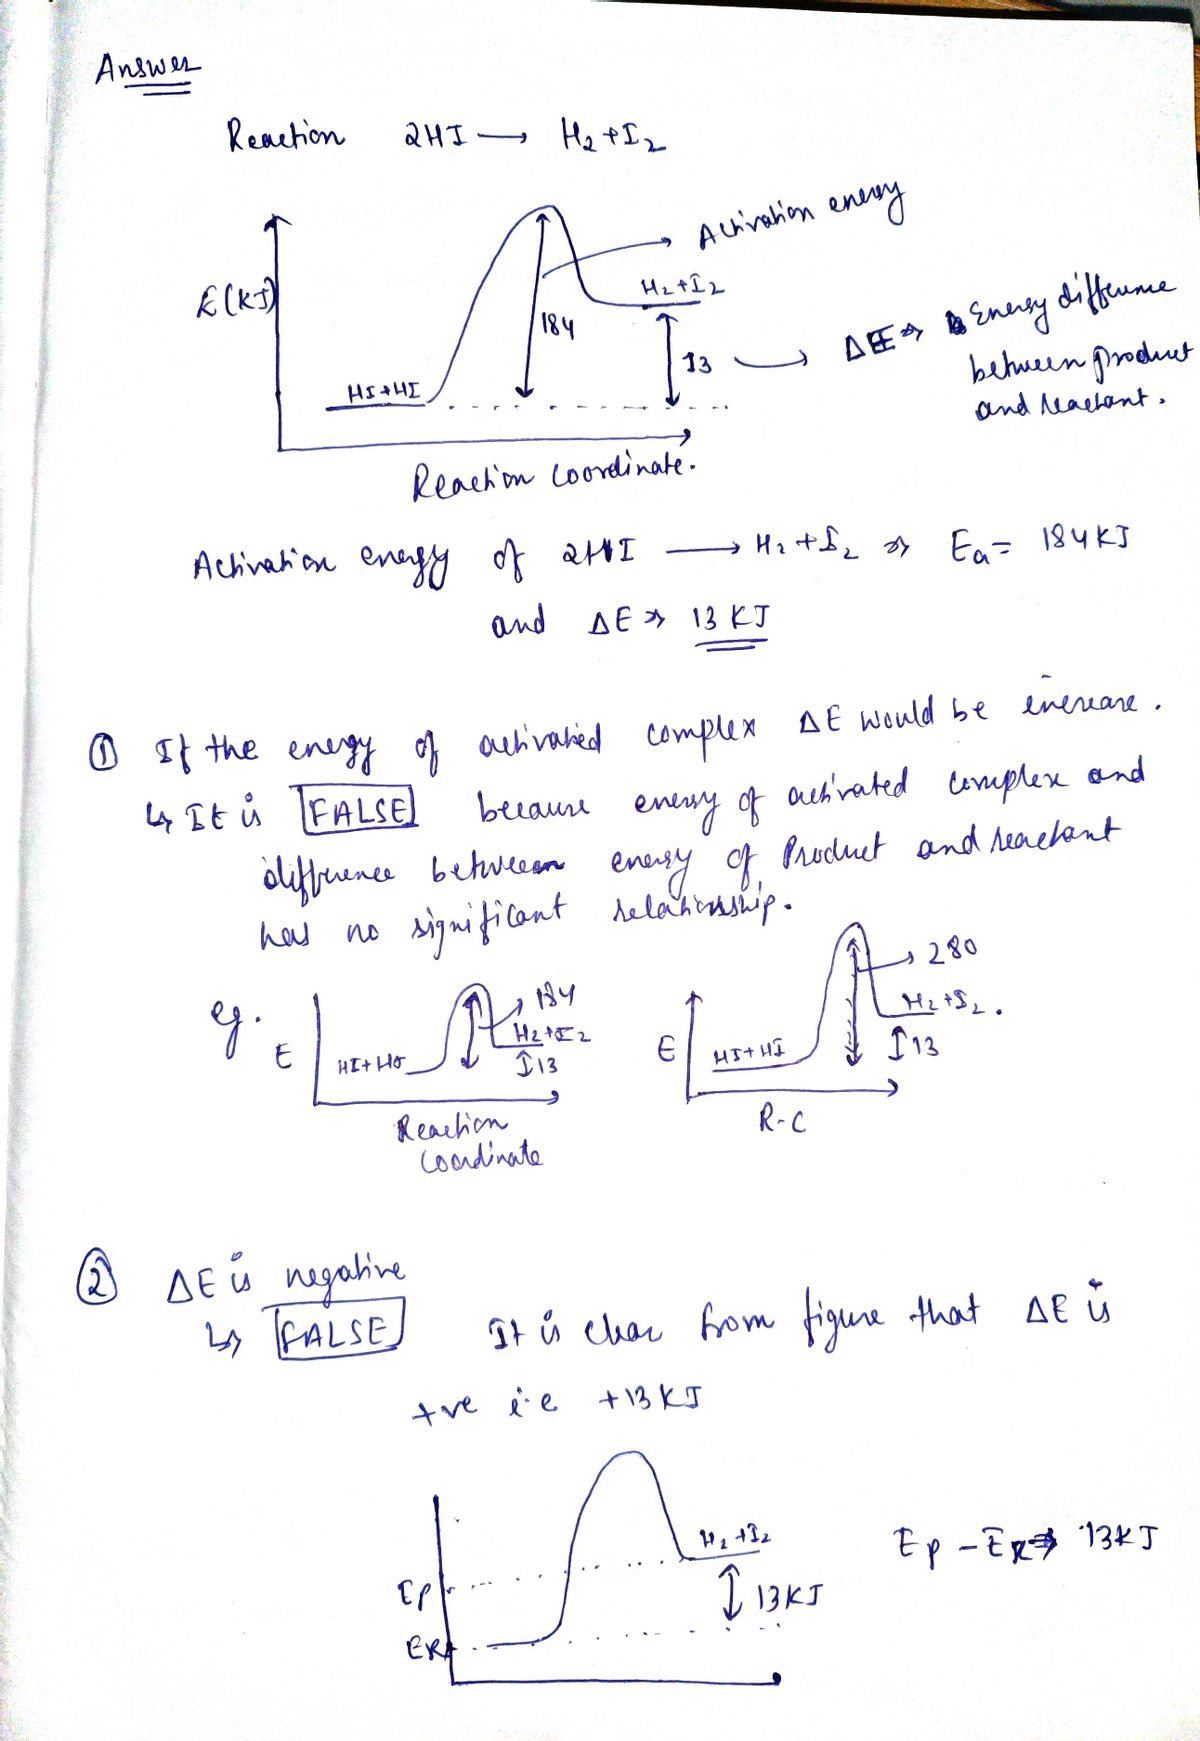 Answer
Reaction 2HI → H2 + I2
Activation energy
E(KJ)
H2 + I2
184
13
ΔE ⇒ Energy difference
between product
and reactant.
HI + HI
Reaction Coordinate.
Activation energy of 2HI → H2 + I2 ⇒ Ea = 184 KJ
and ΔE ⇒ 13 KJ
① If the energy of activated complex ΔE would be increare.
↳ It is FALSE because energy of activated complex and
difference between energy of Product and reactant
has no significant relationship.
eg.
184
H2 + I2
E
HI + HI
13
Reaction
Coordinate
280
H2 + I2.
E
HI + HI
13
R-C
② ΔE is negative
↳ FALSE It is clear from figure that ΔE is
+ve i.e +13 KJ
H2 + I2
EP
13 KJ
ER
EP - ER ⇒ 13 KJ